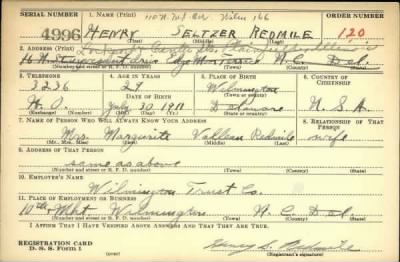 SERIAL NUMBER
1. NAME (Print)
4996
HENRY SELTZER REDMILE
120
(First) (Middle) (Last)
2. ADDRESS (Print)
N. C. Del.
(Number and street or R. F. D. number) (Town) (County) (State)
3. TELEPHONE
4. AGE IN YEARS
5. PLACE OF BIRTH
6. COUNTRY OF CITIZENSHIP
3236
29
Wilmington
DATE OF BIRTH
(Town or county)
July 30 1911
Delaware
U. S. A.
(Exchange) (Number)
(Mo.) (Day) (Yr.)
(State or country)
7. NAME OF PERSON WHO WILL ALWAYS KNOW YOUR ADDRESS
8. RELATIONSHIP OF THAT PERSON
Mrs. Marguerite Redmile
wife
(Mr., Mrs., Miss) (First) (Middle) (Last)
9. ADDRESS OF THAT PERSON
same as above
(Number and street or R. F. D. number) (Town) (County) (State)
10. EMPLOYER'S NAME
Wilmington Trust Co.
11. PLACE OF EMPLOYMENT OR BUSINESS
10th & Mkt. Wilmington N. C. Del.
(Number and street or R. F. D. number) (Town) (County) (State)
I AFFIRM THAT I HAVE VERIFIED ABOVE ANSWERS AND THAT THEY ARE TRUE.
REGISTRATION CARD
D. S. S. Form 1
(over)
Henry S. Redmile
(Registrant's signature)